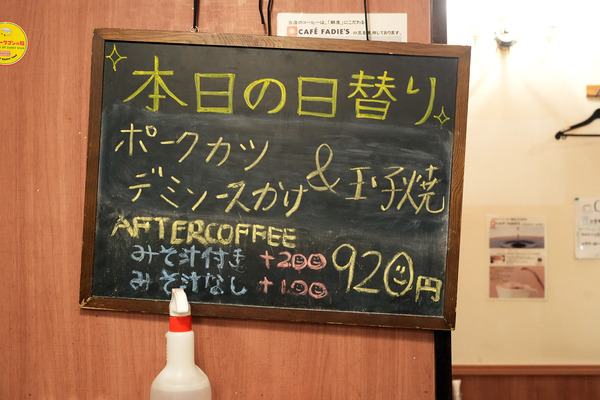 当店のコーヒーは、「鮮度」にこだわる
CAFÉ FADIE'S の豆を使用しております。
本日の日替り
ポークカツ
デミソースかけ
& 玉子焼
AFTERCOFFEE
みそ汁付き +200
みそ汁なし +100
920円